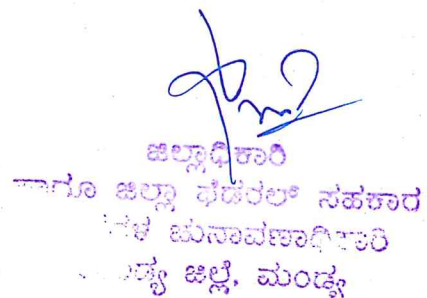 ಜಿಲ್ಲಾಧಿಕಾರಿ
ಹಾಗೂ ಜಿಲ್ಲಾ ಫೆಡರಲ್ ಸಹಕಾರ
ಚುನಾವಣಾಧಿಕಾರಿ
ಜಿಲ್ಲೆ, ಮಂಡ್ಯ